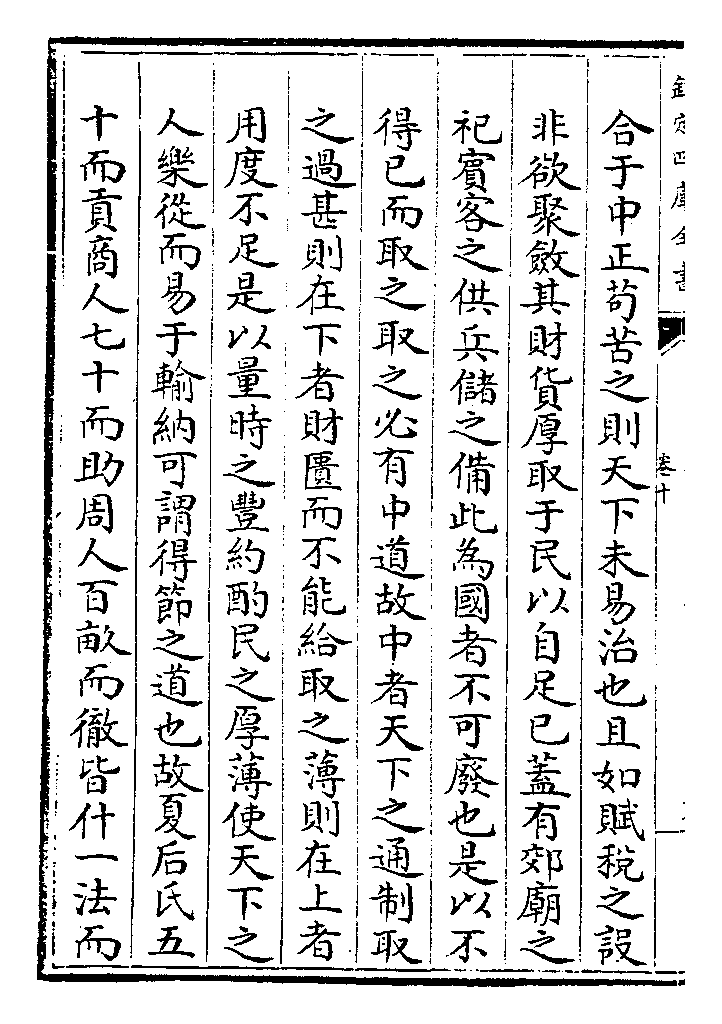 欽定四庫全書
卷十
合于中正苟苦之則天下未易治也且如賦稅之設
非欲聚斂其財貨厚取于民以自足已蓋有郊廟之
祀賓客之供兵儲之備此為國者不可廢也是以不
得已而取之取之必有中道故中者天下之通制取
之過甚則在下者財匱而不能給取之薄則在上者
用度不足是以量時之豐約酌民之厚薄使天下之
人樂從而易于輸納可謂得節之道也故夏后氏五
十而貢商人七十而助周人百畝而徹皆什一法而